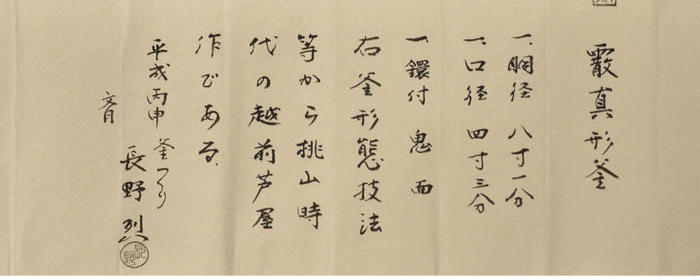 霰真形釜
一、胴径 八寸一分
一、口径 四寸三分
一、鐶付 鬼面
右釜形態技法
等から桃山時
代の越前芦屋
作である。
平成丙申
文月
釜つくり
長野烈